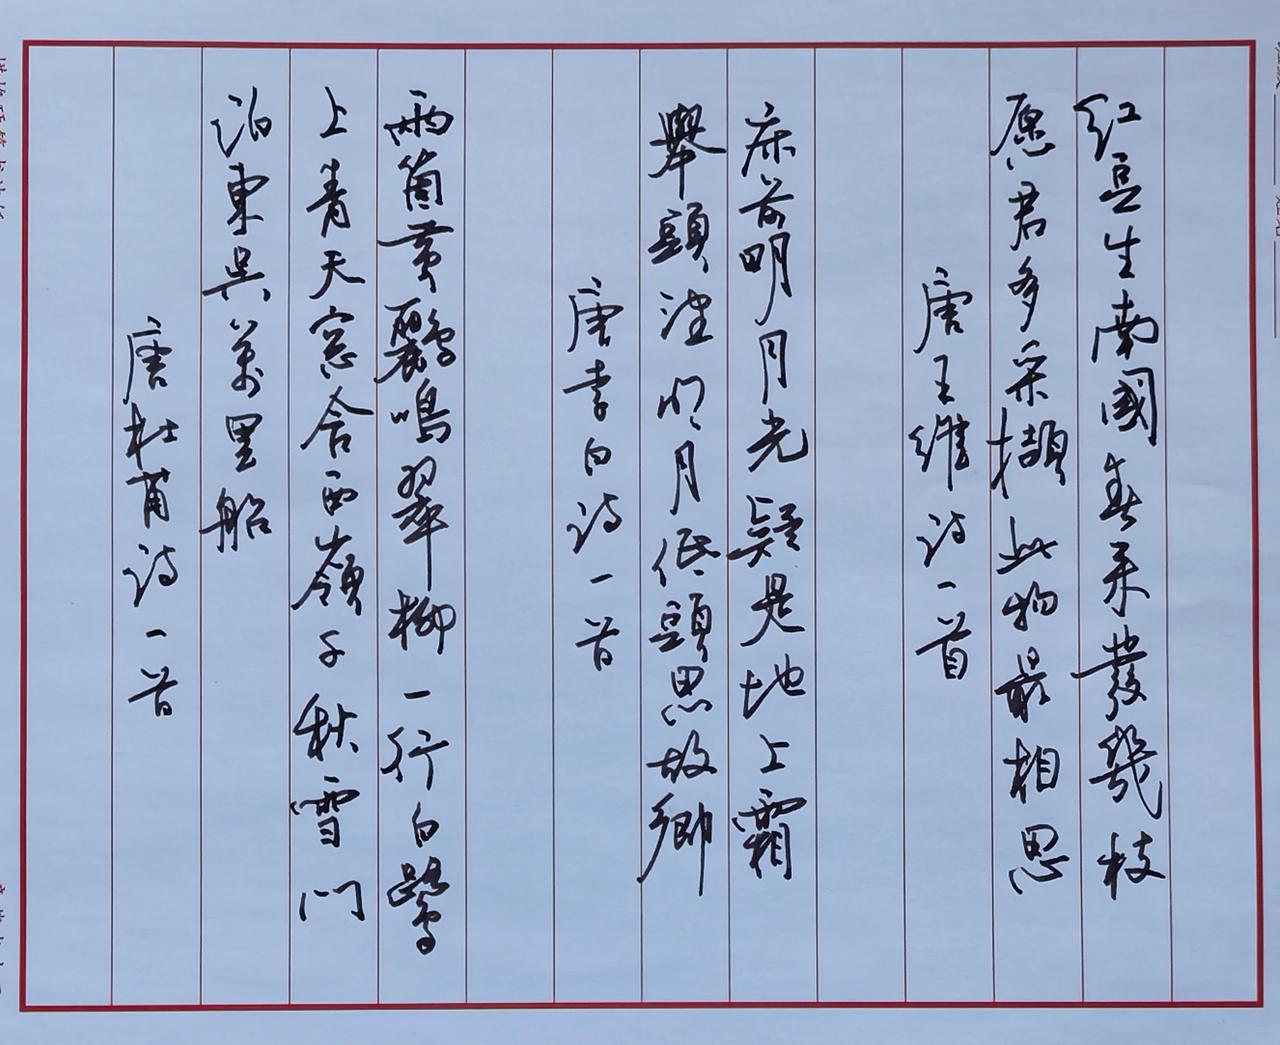 红豆生南國春来發幾枝
愿君多采擷此物最相思
唐王维诗一首
床前明月光疑是地上霜
舉頭望明月低頭思故鄉
唐李白诗一首
兩箇黄鸝鳴翠柳一行白鷺
上青天窓含西嶺千秋雪门
泊東吴萬里船
唐杜甫诗一首